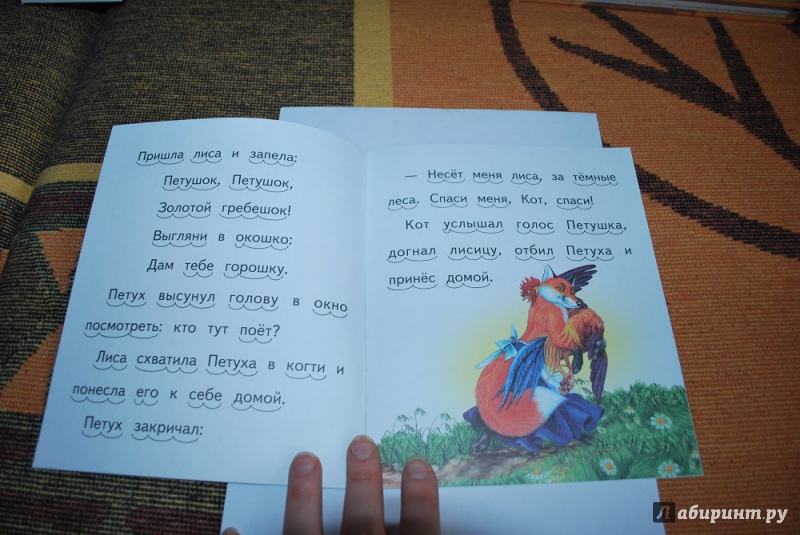 Пришла лиса и запела:
Петушок, Петушок,
Золотой гребешок!
Выгляни в окошко:
Дам тебе горошку.
Петух высунул голову в окно
посмотреть: кто тут поёт?
Лиса схватила Петуха в когти и
понесла его к себе домой.
Петух закричал:
— Несёт меня лиса, за тёмные
леса. Спаси меня, Кот, спаси!
Кот услышал голос Петушка,
догнал лисицу, отбил Петуха и
принёс домой.
Лабиринт.ру